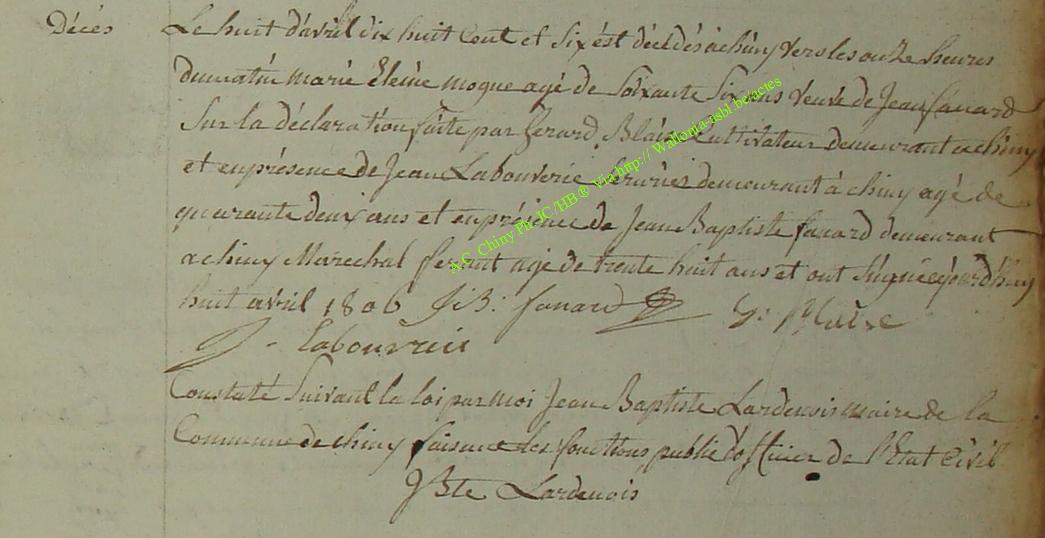 Décés
Le huit d'avril dix huit Cent et Six est décédés à chiny vers les onze heures
du matin marie Eleine moque agé de Soixante Six ans veuve de Jean fanard
Sur la déclaration faite par Gerard Blaise Cultivateur demeurant a chiny
et en présence de Jean Labouverie demeurant à chiny agé de
quarante deux ans et en présence de Jean Baptiste fanard demeurant
a chiny Marechal ferant agé de trente huit ans et ont Signé cejourd'huy
huit avril 1806 J: B: fanard G: Blaise
J - Labouverie
Constaté Suivant la loi par moi Jean Baptiste Lardenois maire de la
Commune de chiny faisant les fonctions public d'officier de l'Etat Civil
JBte Lardenois
A.C. Chiny Ph. JC /HB ® Via http:// Wallonia-asbl.be/actes